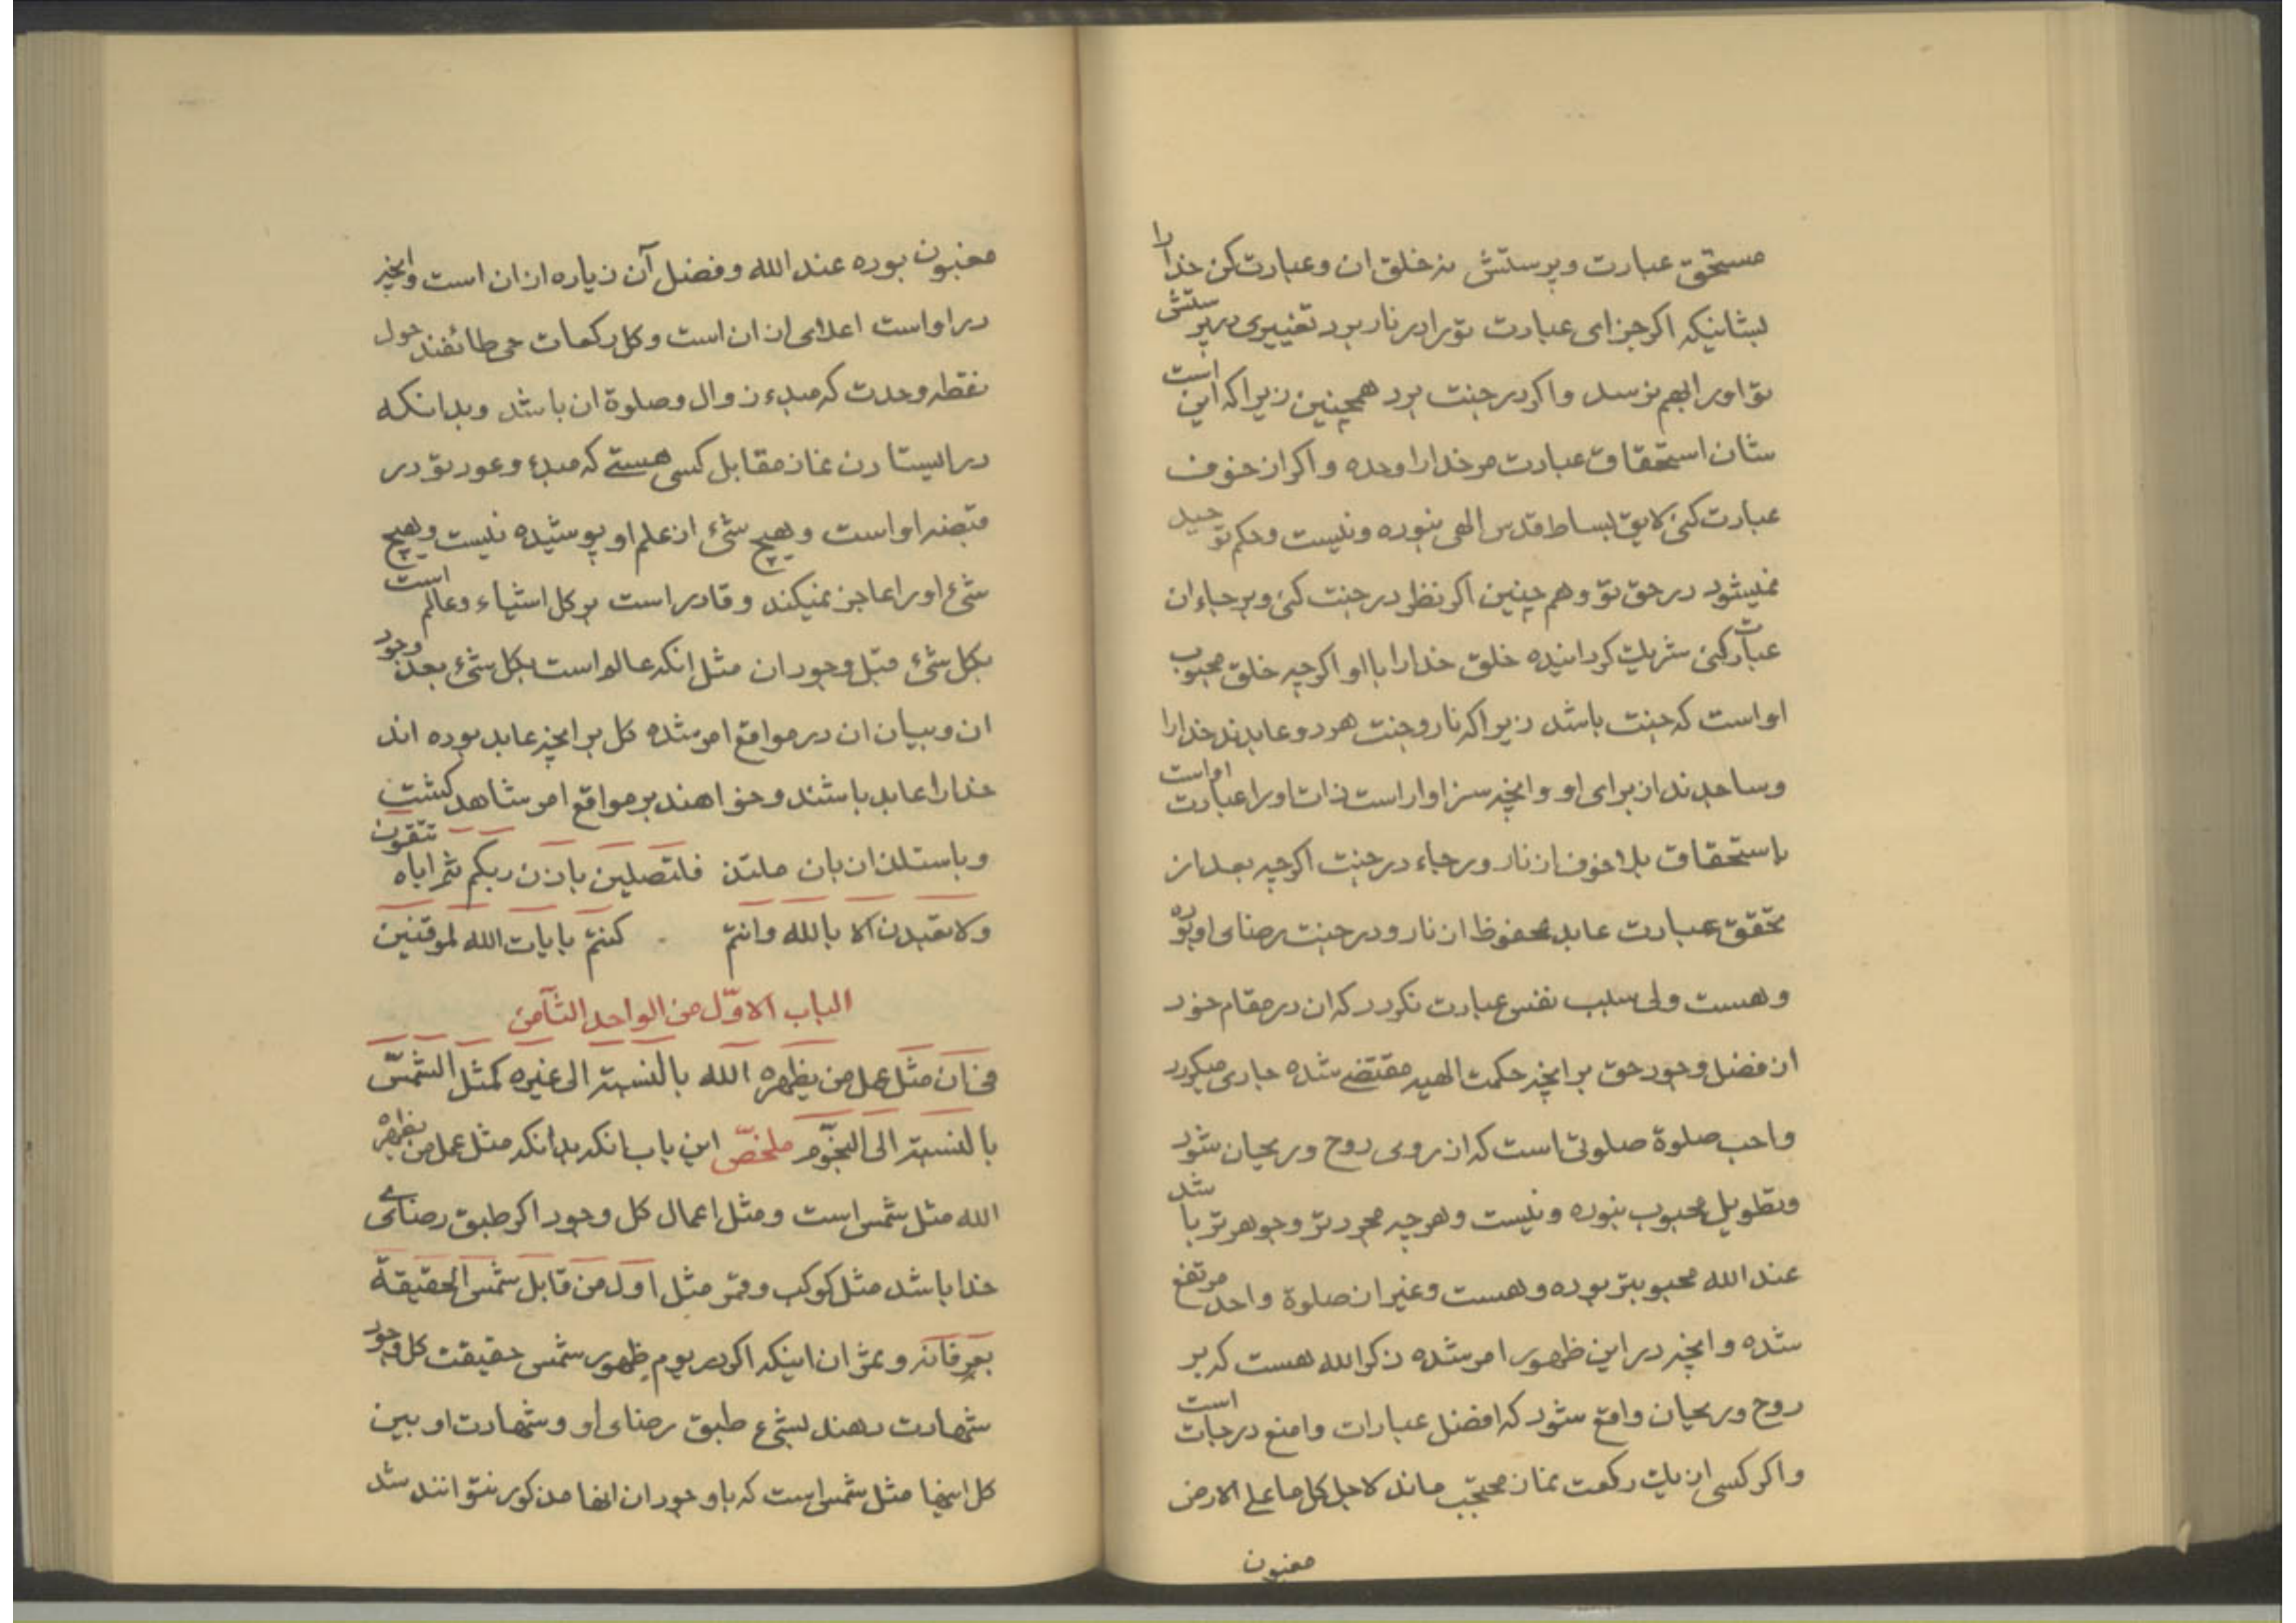 مستحق عبادت وپرستش نه خلق ان وعبادت کن خدا را
بشانیکه اکر جزای عبادت تو را در نار برد تغییری در پرستش
تو او را بهم نرسد واکر در جنت برد همچنین زیرا که این است
شان استحقاق عبادت مر خدا را وحده واکر از خوف
عبادت کنی لایق بساط قدس الهی نبوده ونیست وحکم توحید
نمیشود در حق تو وهم چنین اکر نظر در جنت کنی وبرجاء ان
عبادت کنی شریک کردانیده خلق خدا را با او اکرچه خلق محبوب
او است که جنت باشد زیرا که نار وجنت هر دو عابدند خدا را
وساجدند از برای او وانچه سزاوار است ذات او را عبادت او است
باستحقاق بلا خوف از نار ورجاء در جنت اکرچه بعد از
تحقق عبادت عابد محفوظ از نار ودر جنت رضای او بوده
وهست ولی سبب نفس عبادت نکردد که ان در مقام خود
از فضل وجود حق بر انچه حکمت الهیه مقتضی شده جاری میکردد
واحب صلوة صلوتی است که از روی روح وریحان شود
وتطویل محبوب نبوده ونیست وهرچه مجردتر وجوهرتر باشد
عند الله محبوبتر بوده وهست وغیر از صلوة واحد مرتفع
شده وانچه در این ظهور امر شده ذکر الله هست که بر
روح وریحان واقع شود که افضل عبادات وامنع درجات است
واکر کسی از یک رکعت نماز محتجب ماند لاجل کل ما علی الارض
مغبون
مغبون بوده عند الله وفضل آن زیاده از ان است وانچه
در او است اعلای از ان است وکل رکعات حی طائفند حول
نقطه وحدت که مبدء زوال وصلوة ان باشد وبدانکه
در ایستادن نماز مقابل کسی هستی که مبدء وعود تو در
قبضه او است وهیچ شیء از علم او پوشیده نیست وهیچ
شیء او را عاجز نمیکند وقادر است بر کل اشیاء وعالم است
بکل شیء قبل وجود ان مثل انکه عالم است بکل شیء بعد وجود
ان وبیان ان در مواقع امر شده کل بر انچه عابد بوده اند
خدا را عابد باشند وخواهند بر مواقع امر مشاهد کشت
وباستلذان بان متلذذ فلتصلین باذن ربکم ثم ایاه تتقون
ولا تعبدن الا بالله وانتم کنتم بایات الله لموقنین
الباب الاوّل من الواحد الثامن
فی ان مثل عمل من یظهره الله بالنسبة الی غیره کمثل الشمس
بالنسبة الی النجوم ملخص این باب انکه بدانکه مثل عمل من یظهره
الله مثل شمس است ومثل اعمال کل وجود اکر طبق رضای
خدا باشد مثل کوکب وقمر مثل اول من قابل شمس الحقیقة
بعرفانه وثمر ان اینکه اکر در یوم ظهور شمس حقیقت کل وجود
شهادت دهند بشیء طبق رضای او وشهادت او بین
کل اینها مثل شمس است که با وجود ان انها مذکور نتوانند شد